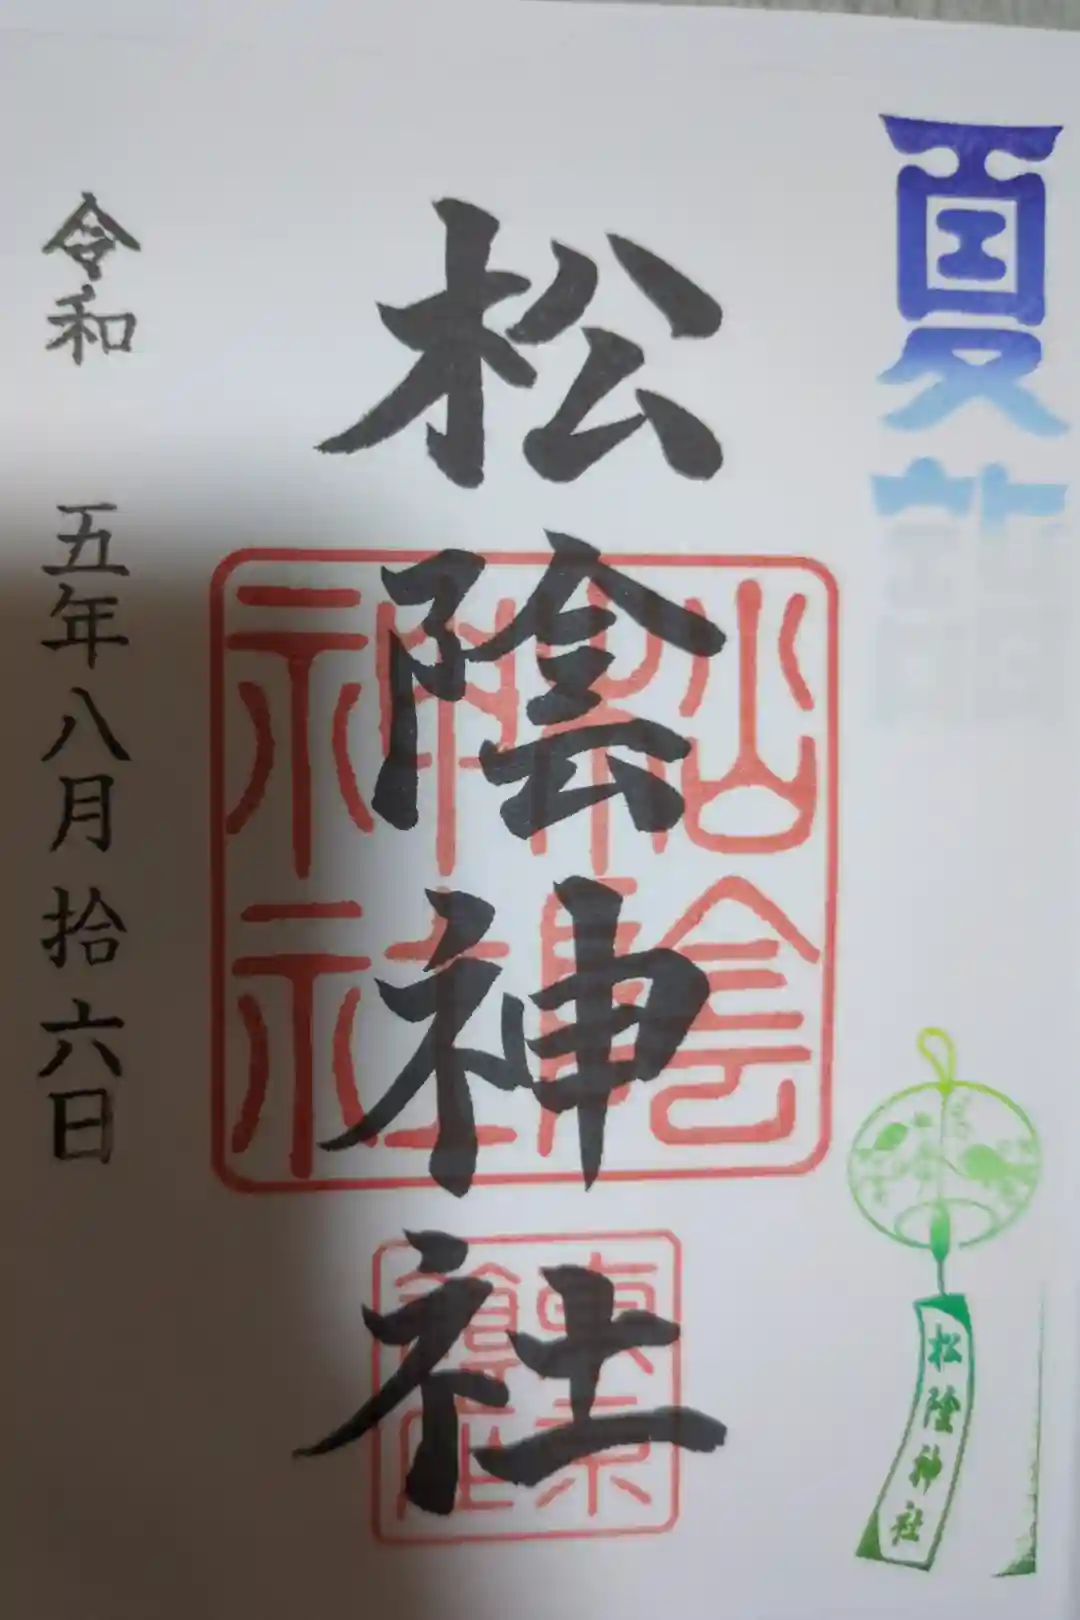 夏詣
松陰神社
松陰神社
松陰神社
東京
令和 五年八月拾六日